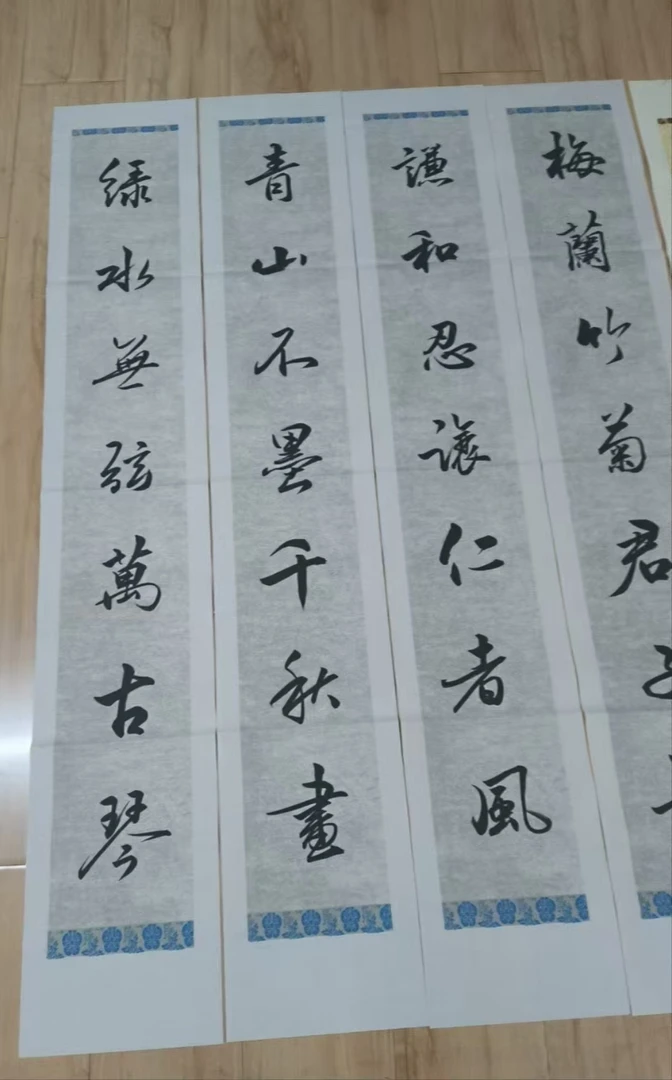 梅蘭竹菊君子
謙和忍讓仁者風
青山不墨千秋畫
綠水無弦萬古琴